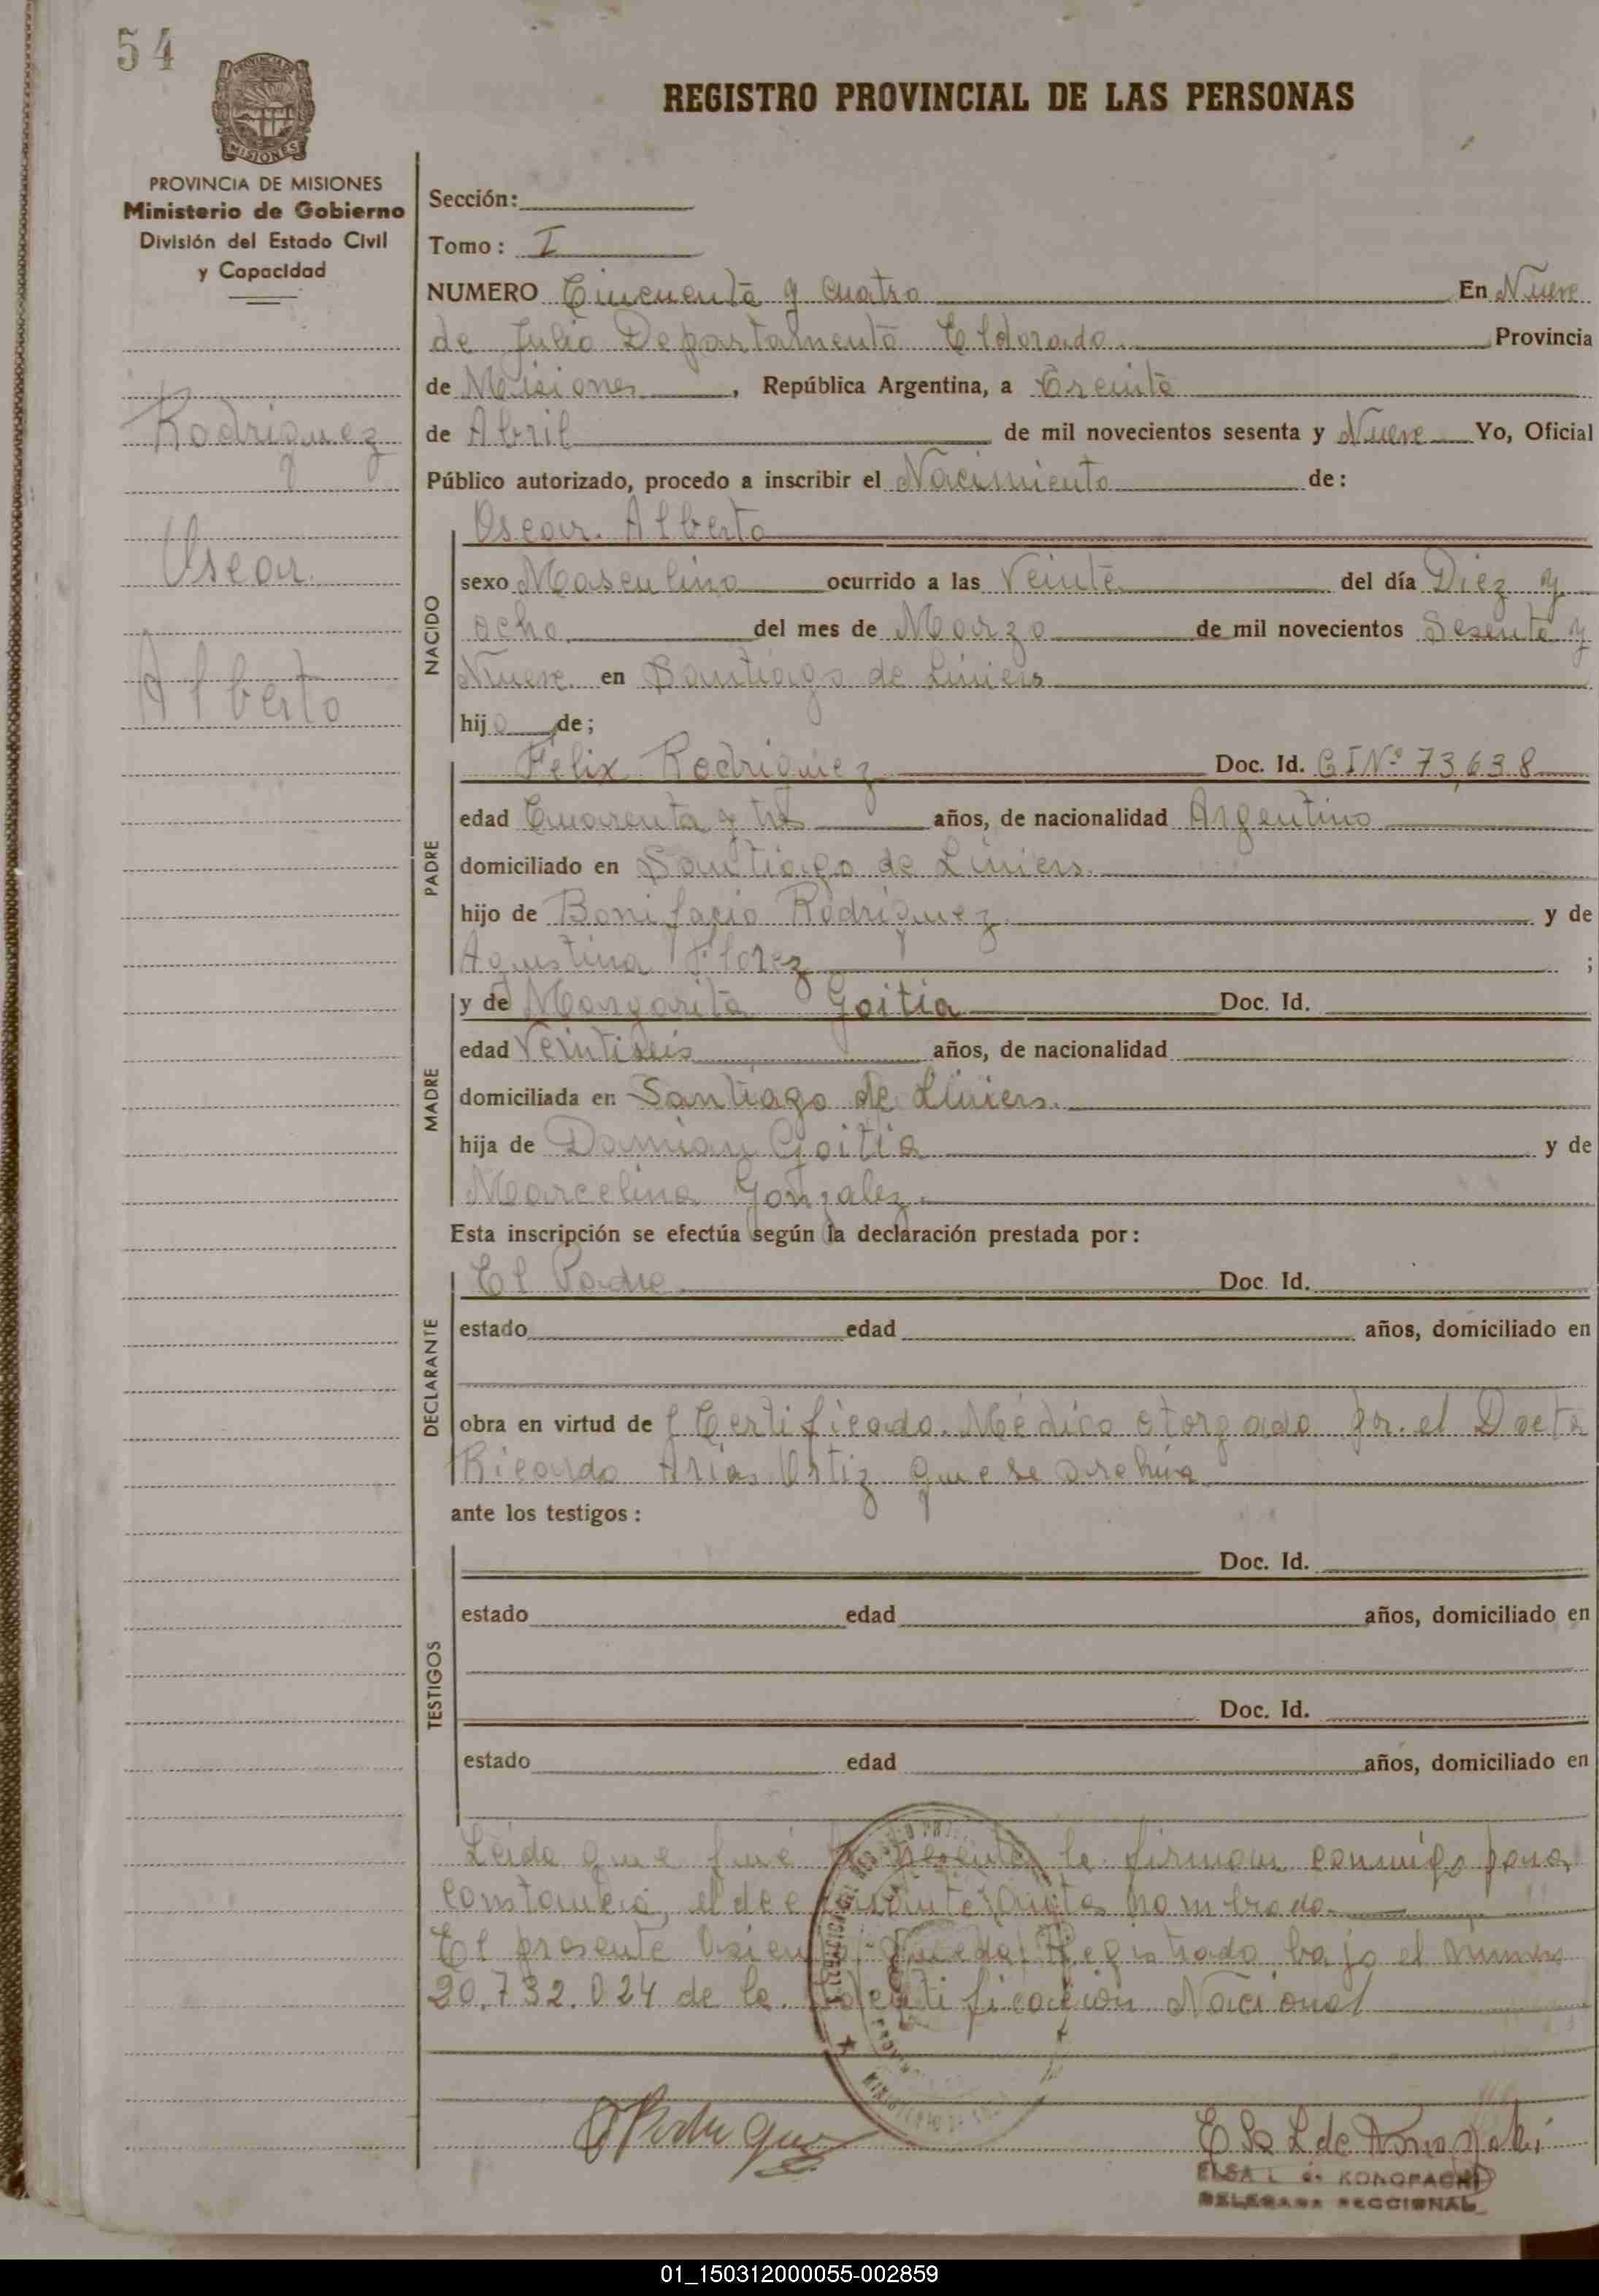 54
PROVINCIA DE MISIONES
Ministerio de Gobierno
División del Estado Civil
y Capacidad
Rodriguez
Oscar
Alberto
REGISTRO PROVINCIAL DE LAS PERSONAS
Sección:
Tomo: I
NUMERO Cincuenta y cuatro En Nueve
de Julio Departamento Eldorado Provincia
de Misiones, República Argentina, a Treinta
de Abril de mil novecientos sesenta y Nueve Yo, Oficial
Público autorizado, procedo a inscribir el Nacimiento de:
NACIDO
Oscar Alberto
sexo Masculino ocurrido a las Veinte del día Diez y
ocho del mes de Marzo de mil novecientos Sesenta y
Nueve en Santiago de Liniers
hijo de;
PADRE
Felix Rodriguez Doc. Id. CI Nº 73,638
edad Cuarenta y tres años, de nacionalidad Argentino
domiciliado en Santiago de Liniers.
hijo de Bonifacio Rodriguez y de
Agustina Florez ;
MADRE
y de Margarita Goitia Doc. Id.
edad Veintiseis años, de nacionalidad
domiciliada en Santiago de Liniers.
hija de Damian Goitia y de
Marcelina Gonzalez.
Esta inscripción se efectúa según la declaración prestada por:
DECLARANTE
El Padre Doc. Id.
estado edad años, domiciliado en
obra en virtud de Certificado Médico otorgado por el Doctor
Ricardo Arias Ortiz que se archiva
ante los testigos:
TESTIGOS
Doc. Id.
estado edad años, domiciliado en
Doc. Id.
estado edad años, domiciliado en
Leida que fué la presente la firman conmigo para
constancia, el declarante antes nombrado
El presente Asiento queda Registrado bajo el número
20.732.024 de la Identificación Nacional
ELSA L de KONOPACKI
DELEGADA SECCIONAL
01_150312000055-002859